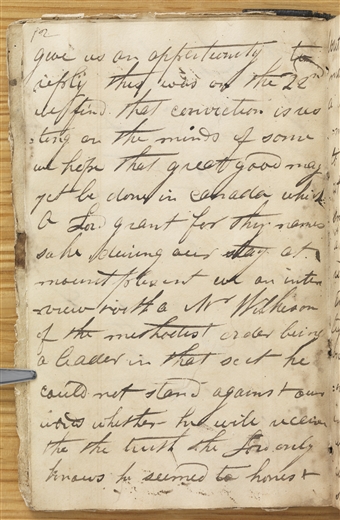 102
give us an oppertunity to
reply this was on the 22nd
we find that conviction is res
ting on the minds of some
we hope that great good may
yet be done in canada which
O Lord grant for thy names
sake during our stay at
mount plesent we an inter
view with a Mr Wilkeson
of the methodist order being
a leader in that sect he
could not stand against our
words whether he will receive
the the truth the Lord only
knows he seemed to honest